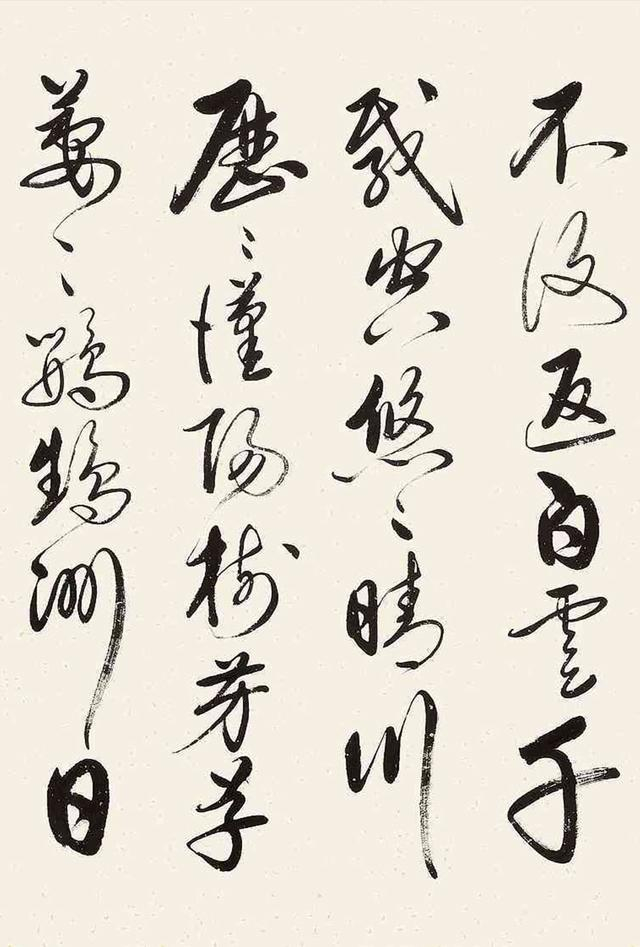 不復返白雲千
載空悠〻晴川
歷〻漢陽樹芳草
萋〻鸚鵡洲日